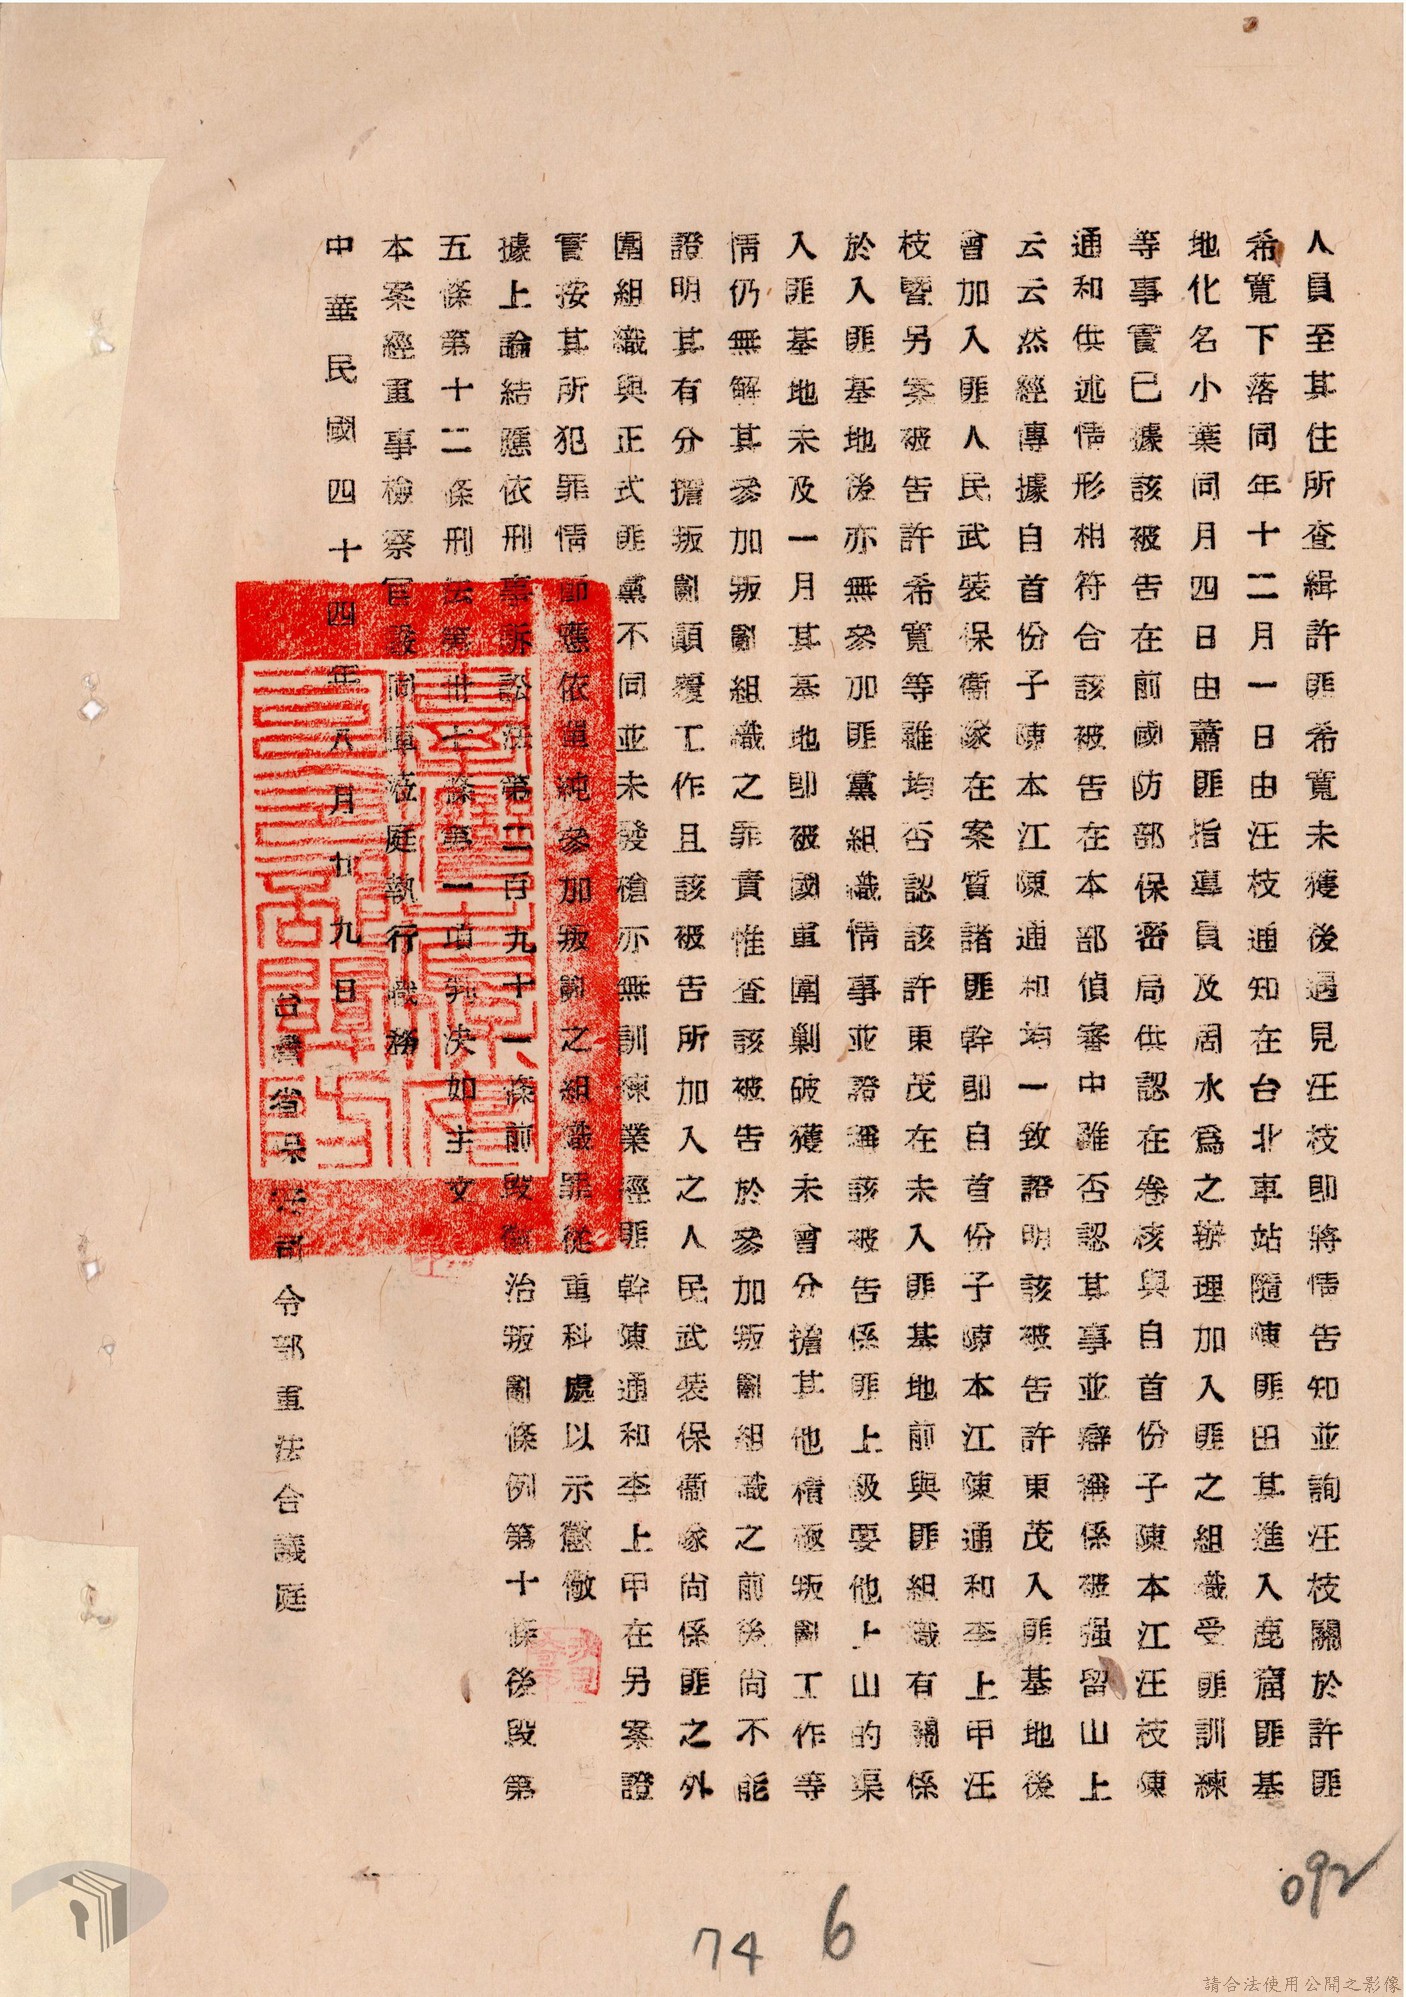 人員至其住所查緝許匪希寬未獲後遇見汪枝即將情告知並詢汪枝關於許匪
希寬下落同年十二月一日由汪枝通知在台北車站隨陳匪田其進入鹿窟匪基
地化名小葉同月四日由蕭匪指導員及周水為之辦理加入匪之組織受匪訓練
等事實已據該被告在前國防部保密局供認在卷核與自首份子陳本江汪枝陳
通和供述情形相符合該被告在本部偵審中雖否認其事並辯稱係被强留山上
云云然經傳據自首份子陳本江陳通和均一致證明該被告許東茂入匪基地後
曾加入匪人民武裝保衞隊在案質諸匪幹即自首份子陳本江陳通和李上甲汪
枝暨另案被告許希寬等雖均否認該許東茂在未入匪基地前與匪組織有關係
於入匪基地後亦無參加匪黨組織情事並證稱該被告係匪上級要他上山的渠
入匪基地未及一月其基地即被國軍圍剿破獲未曾分擔其他積極叛亂工作等
情仍無解其參加叛亂組織之罪責惟查該被告於參加叛亂組織之前後尚不能
證明其有分擔叛亂顛覆工作且該被告所加入之人民武裝保衞隊尚係匪之外
圍組織與正式匪黨不同並未發槍亦無訓練業經匪幹陳通和李上甲在另案證
實按其所犯罪情節應依單純參加叛亂之組織罪從重科處以示懲儆
據上論結應依刑事訴訟法第二百九十一條前段懲治叛亂條例第十條後段第
五條第十二條刑法第卅七條第一項判決如主文
本案經軍事檢察官設同軍蒞庭執行職務
中華民國四十四年八月廿九日
台灣省保安司令部軍法合議庭
092
74
6
請合法使用公開之影像